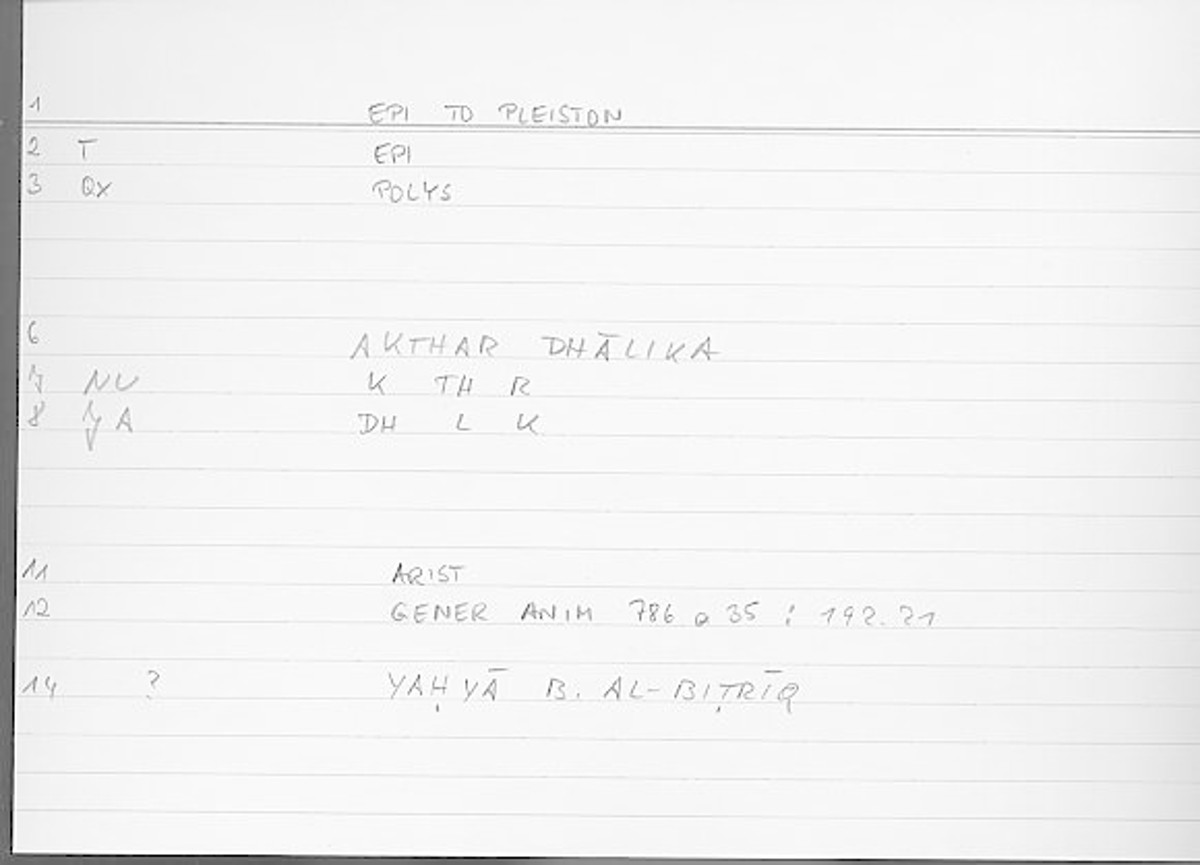 1 EPI TO PLEISTON
2 T EPI
3 QX POLYS
6 AKTHAR DHĀLIKA
7 NU K TH R
8 JA DH L K
11 ARIST
12 GENER ANIM 786 a 35 : 192.21
14 ? YAḤYĀ B. AL-BIṬRĪQ